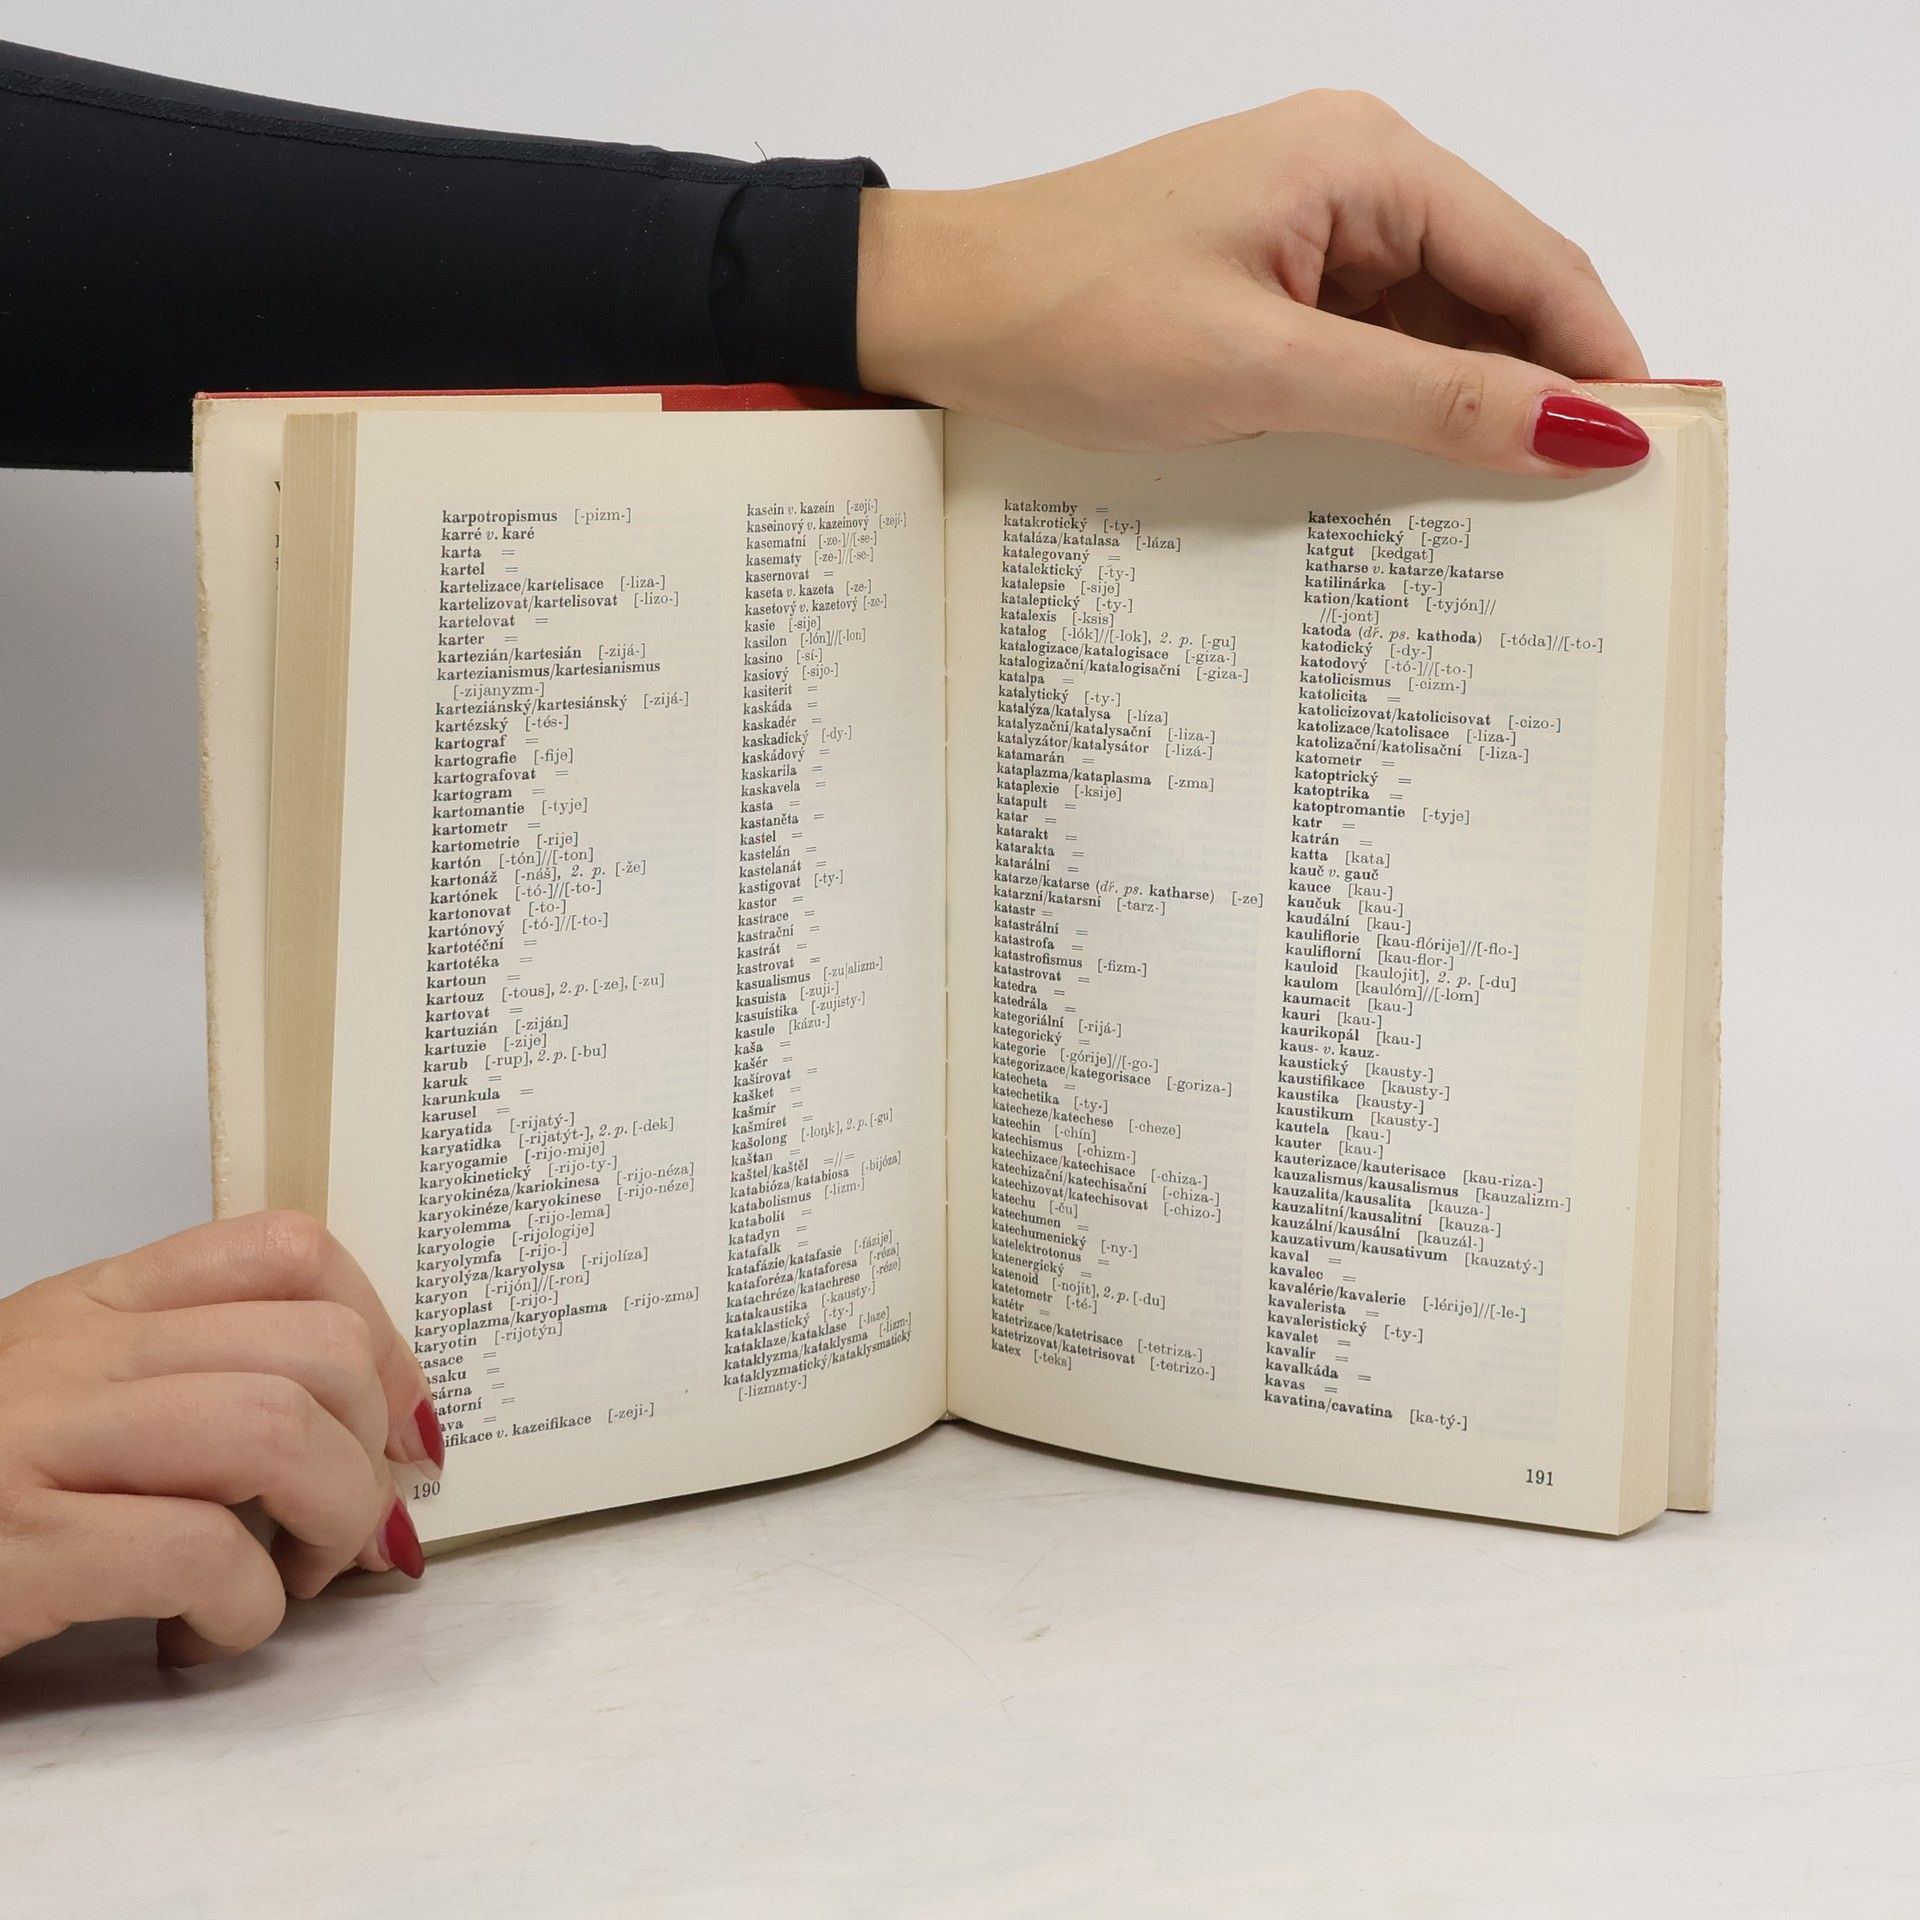 karpotropismus [-pizm-]
karré v. karé
karta =
kartel =
kartelizace/kartelisace [-liza-]
kartelizovat/kartelisovat [-lizo-]
kartelovat =
karter =
kartezián/kartesián [-zijá-]
kartezianismus/kartesianismus
[-zijanyzm-]
karteziánský/kartesiánský [-zijá-]
kartézský [-tés-]
kartograf =
kartografie [-fije]
kartografovat =
kartogram =
kartomantie [-tyje]
kartometr =
kartometrie [-rije]
kartón [-tón]//[-ton]
kartonáž [-náš], 2. p. [-že]
kartónek [-tó-]//[-to-]
kartonovat [-to-]
kartónový [-tó-]//[-to-]
kartotéční =
kartotéka =
kartoun =
kartouz [-tous], 2. p. [-ze], [-zu]
kartovat =
kartuzián [-ziján]
kartuzie [-zije]
karub [-rup], 2. p. [-bu]
karuk =
karunkula =
karusel =
karyatida [-rijatý-]
karyatidka [-rijatýt-], 2. p. [-dek]
karyogamie [-rijo-mije]
karyokinetický [-rijo-ty-]
karyokinéza/kariokinesa [-rijo-néza]
karyokinéze/karyokinese [-rijo-néze]
karyolemma [-rijo-lema]
karyologie [-rijologije]
karyolymfa [-rijo-]
karyolýza/karyolysa [-rijolíza]
karyon [-rijón]//[-ron]
karyoplast [-rijo-]
karyoplazma/karyoplasma [-rijo-zma]
karyotin [-rijotýn]
asace =
saku =
sárna =
satorní =
ava =
ifikace v. kazeifikace [-zeji-]
190
kasein v. kazeín [-zejí-]
kaseinový v. kazeínový [-zejí-]
kasematní [-ze-]//[-se-]
kasematy [-ze-]//[-se-]
kasernovat =
kaseta v. kazeta [-ze-]
kasetový v. kazetový [-ze-]
kasie [-sije]
kasilon [-lón]//[-lon]
kasino [-sí-]
kasiový [-sijo-]
kasiterit =
kaskáda =
kaskadér =
kaskadický [-dy-]
kaskádový =
kaskarila =
kaskavela =
kasta =
kastaněta =
kastel =
kastelán =
kastelanát =
kastigovat [-ty-]
kastor =
kastrace =
kastrační =
kastrát =
kastrovat =
kasualismus [-zu|alizm-]
kasuista [-zuji-]
kasuistika [-zujisty-]
kasule [kázu-]
kaša =
kašér =
kašírovat =
kašket =
kašmír =
kašmíret =
kašolong [-loŋk], 2. p. [-gu]
kaštan =
kaštel/kaštěl =//=
katabióza/katabiosa [-bijóza]
katabolismus [-lizm-]
katabolit =
katadyn =
katafalk =
katafázie/katafasie [-fázije]
kataforéza/kataforesa [-réza]
katachréze/katachrese [-réze]
katakaustika [-kausty-]
kataklastický [-ty-]
kataklaze/kataklase [-laze]
kataklyzma/kataklysma [-lizm-]
kataklyzmatický/kataklysmatický
[-lizmaty-]
katakomby =
katakrotický [-ty-]
kataláza/katalasa [-láza]
katalegovaný =
katalektický [-ty-]
katalepsie [-sije]
kataleptický [-ty-]
katalexis [-ksis]
katalog [-lók]//[-lok], 2. p. [-gu]
katalogizace/katalogisace [-giza-]
katalogizační/katalogisační [-giza-]
katalpa =
katalytický [-ty-]
katalýza/katalysa [-líza]
katalyzační/katalysační [-liza-]
katalyzátor/katalysátor [-lizá-]
katamarán =
kataplazma/kataplasma [-zma]
kataplexie [-ksije]
katapult =
katar =
katarakt =
katarakta =
katarální =
katarze/katarse (dř. ps. katharse) [-ze]
katarzní/katarsní [-tarz-]
katastr =
katastrální =
katastrofa =
katastrofismus [-fizm-]
katastrovat =
katedra =
katedrála =
kategoriální [-rijá-]
kategorický =
kategorie [-górije]//[-go-]
kategorizace/kategorisace [-goriza-]
katecheta =
katechetika [-ty-]
katecheze/katechese [-cheze]
katechin [-chín]
katechismus [-chizm-]
katechizace/katechisace [-chiza-]
katechizační/katechisační [-chiza-]
katechizovat/katechisovat [-chizo-]
katechu [-ču]
katechumen =
katechumenický [-ny-]
katelektrotonus =
katenergický =
katenoid [-nojit], 2. p. [-du]
katetometr [-té-]
katétr =
katetrizace/katetrisace [-tetriza-]
katetrizovat/katetrisovat [-tetrizo-]
katex [-teks]
katexochén [-tegzo-]
katexochický [-gzo-]
katgut [kedgat]
katharse v. katarze/katarse
katilinárka [-ty-]
kation/kationt [-tyjón]//
//[-jont]
katoda (dř. ps. kathoda) [-tóda]//[-to-]
katodický [-dy-]
katodový [-tó-]//[-to-]
katolicismus [-cizm-]
katolicita =
katolicizovat/katolicisovat [-cizo-]
katolizace/katolisace [-liza-]
katolizační/katolisační [-liza-]
katometr =
katoptrický =
katoptrika =
katoptromantie [-tyje]
katr =
katrán =
katta [kata]
kauč v. gauč
kauce [kau-]
kaučuk [kau-]
kaudální [kau-]
kauliflorie [kau-flórije]//[-flo-]
kauliflorní [kau-flor-]
kauloid [kaulojit], 2. p. [-du]
kaulom [kaulóm]//[-lom]
kaumacit [kau-]
kauri [kau-]
kaurikopál [kau-]
kaus- v. kauz-
kaustický [kausty-]
kaustifikace [kausty-]
kaustika [kausty-]
kaustikum [kausty-]
kautela [kau-]
kauter [kau-]
kauterizace/kauterisace [kau-riza-]
kauzalismus/kausalismus [kauzalizm-]
kauzalita/kausalita [kauza-]
kauzalitní/kausalitní [kauza-]
kauzální/kausální [kauzál-]
kauzativum/kausativum [kauzatý-]
kaval =
kavalec =
kavalérie/kavalerie [-lérije]//[-le-]
kavalerista =
kavaleristický [-ty-]
kavalet =
kavalír =
kavalkáda =
kavas =
kavatina/cavatina [ka-tý-]
191